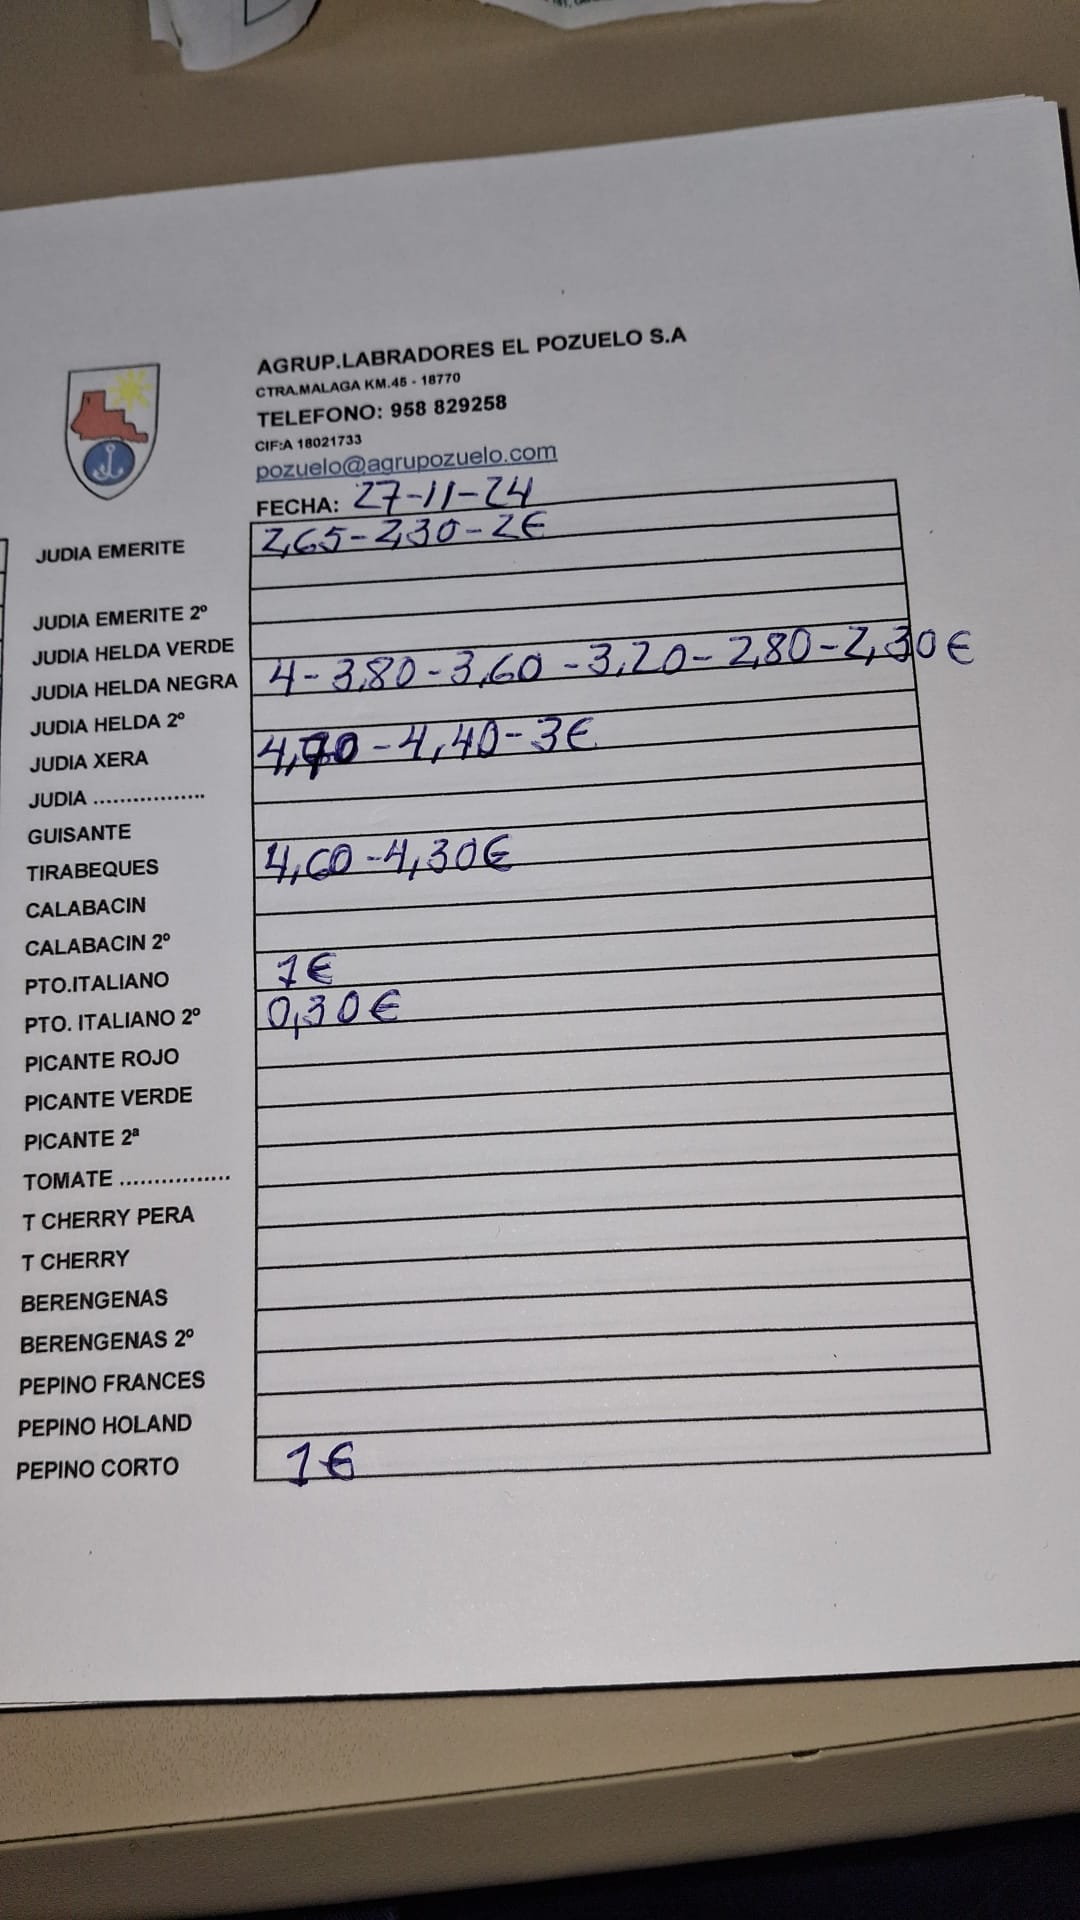 AGRUP.LABRADORES EL POZUELO S.A
CTRA.MALAGA KM.45 - 18770
TELEFONO: 958 829258
CIF:A 18021733
pozuelo@agrupozuelo.com
FECHA: 27-11-24
JUDIA EMERITE 2,65-2,30-2€
JUDIA EMERITE 2º
JUDIA HELDA VERDE
JUDIA HELDA NEGRA 4-3,80-3,60-3,20-2,80-2,30€
JUDIA HELDA 2º
JUDIA XERA 4,70-4,40-3€
JUDIA .................
GUISANTE
TIRABEQUES 4,60-4,30€
CALABACIN
CALABACIN 2º
PTO.ITALIANO 1€
PTO. ITALIANO 2º 0,30€
PICANTE ROJO
PICANTE VERDE
PICANTE 2ª
TOMATE ................
T CHERRY PERA
T CHERRY
BERENGENAS
BERENGENAS 2º
PEPINO FRANCES
PEPINO HOLAND
PEPINO CORTO 1€